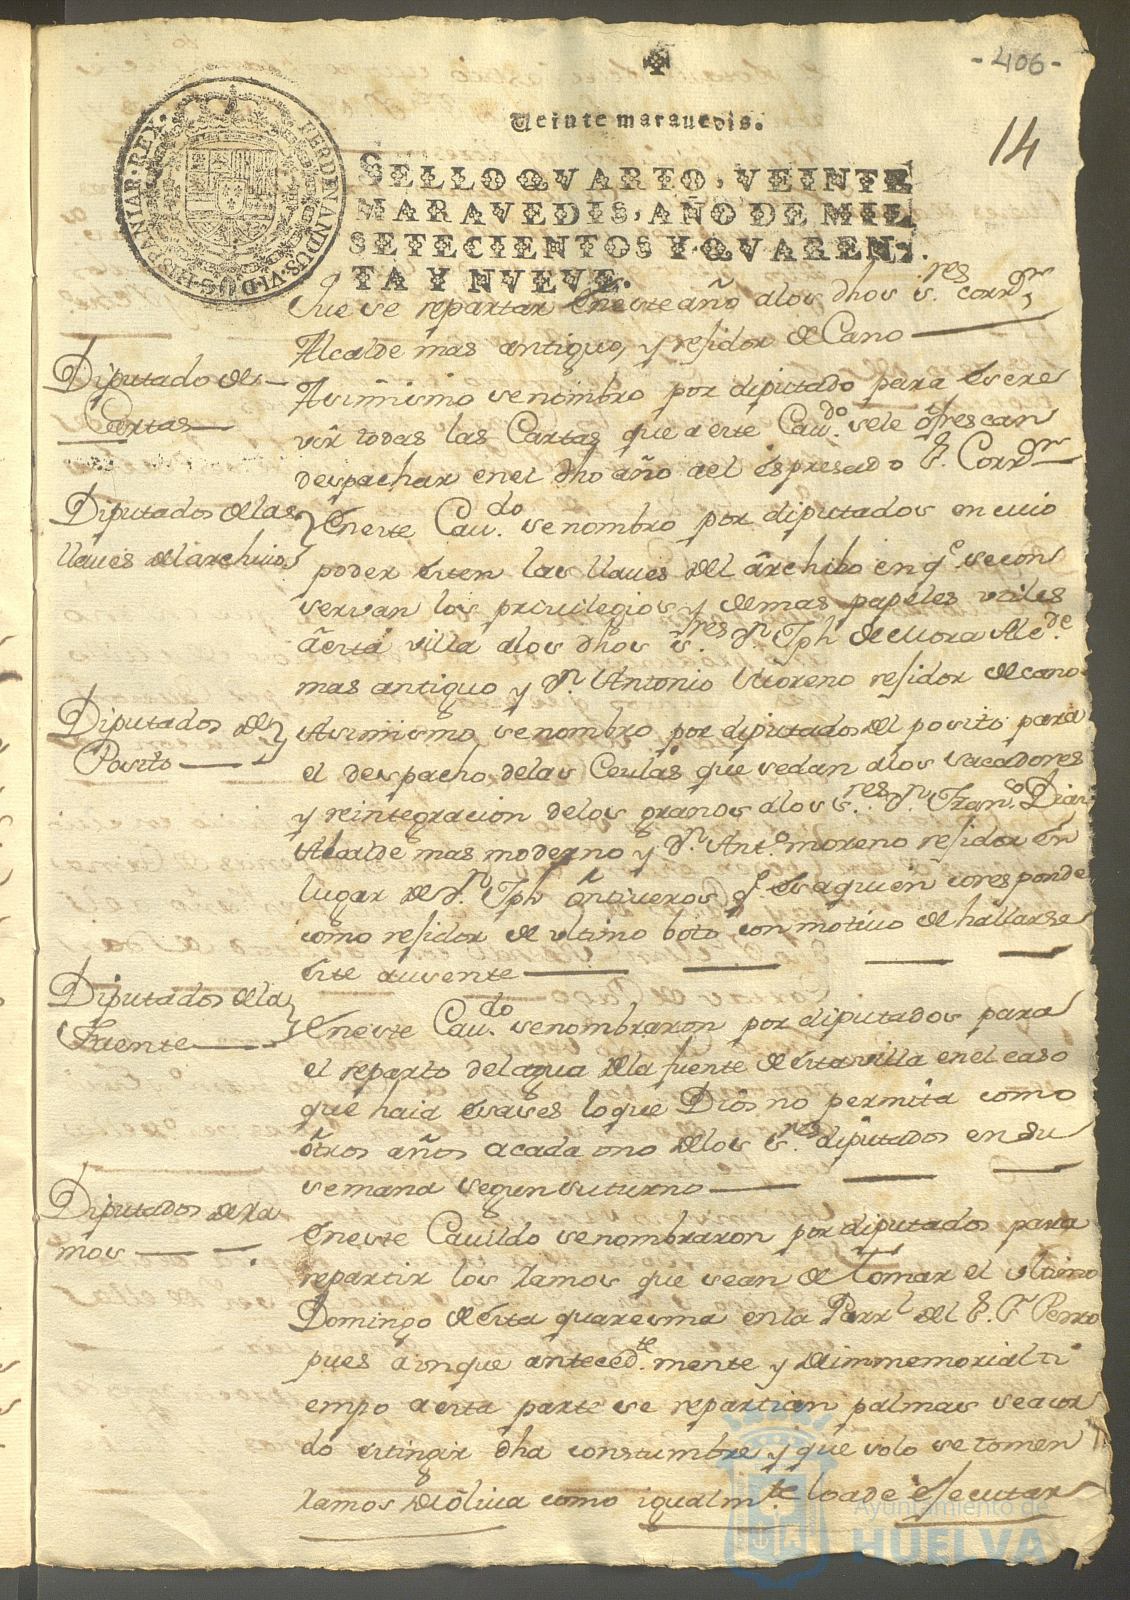 -406-
14
Veinte maravedis.
SELLO QVARTO, VEINTE
MARAVEDIS, AÑO DE MIL
SETECIENTOS Y QVAREN-
TA Y NVEVE.
FERDINANDUS·VI·D·G·HISPANIAR·REX·
Que se repartan en este año a los dhos s.res corr.or
Alcalde mas antiguo, y rejidor de Cano
Diputado de
Cartas
Asimismo se nombro por diputado para escre
vir todas las Cartas que a este Cav.do se le ofrescan
despachar en el dho año a el espresado S. Corr.or
Diputados de las
llaves del archivo
En este Cav.do se nombro por diputados en cuio
poder esten las llaves del archibo en q.e se con
servan los privilegios y demas papeles utiles
a esta villa a los dhos s.res d.n Jph de Mora Alc.de
mas antiguo y d.n Antonio Moreno rejidor de cano
Diputados del
Posito
Asimismo se nombro por diputados del posito para
el despacho de las Ceulas que se dan a los sacadores
y reintegracion de los granos a los s.res d.n Fran.co Dias
Alcalde mas moderno y d.n Ant.o moreno rejidor en
lugar de d.n Jph ontiveros q.e es a quien coresponde
como rejidor de ultimo boto con motivo de hallarse
este ausente
Diputados de la
Fuente
En este Cav.do se nombraron por diputados para
el reparto del agua de la fuente de esta villa en el caso
que haia escases lo que Dios no permita como
otros años a cada ono de los s.res diputados en su
semana segun su turno
Diputados de Ra
mos
En este Cauildo se nombraron por diputados para
repartir los Ramos que se an de tomar el ultimo
Domingo de esta quaresma en la Parr.l del S. S. Pedro
pues aunque anteced.te mente y de immemorial ti
empo a esta parte se repartian palmas se acor
do estingir dha constumbre y que solo se tomen
Ramos de oliva como igualm.te lo a de ejecutar
Ayuntamiento de
HUELVA